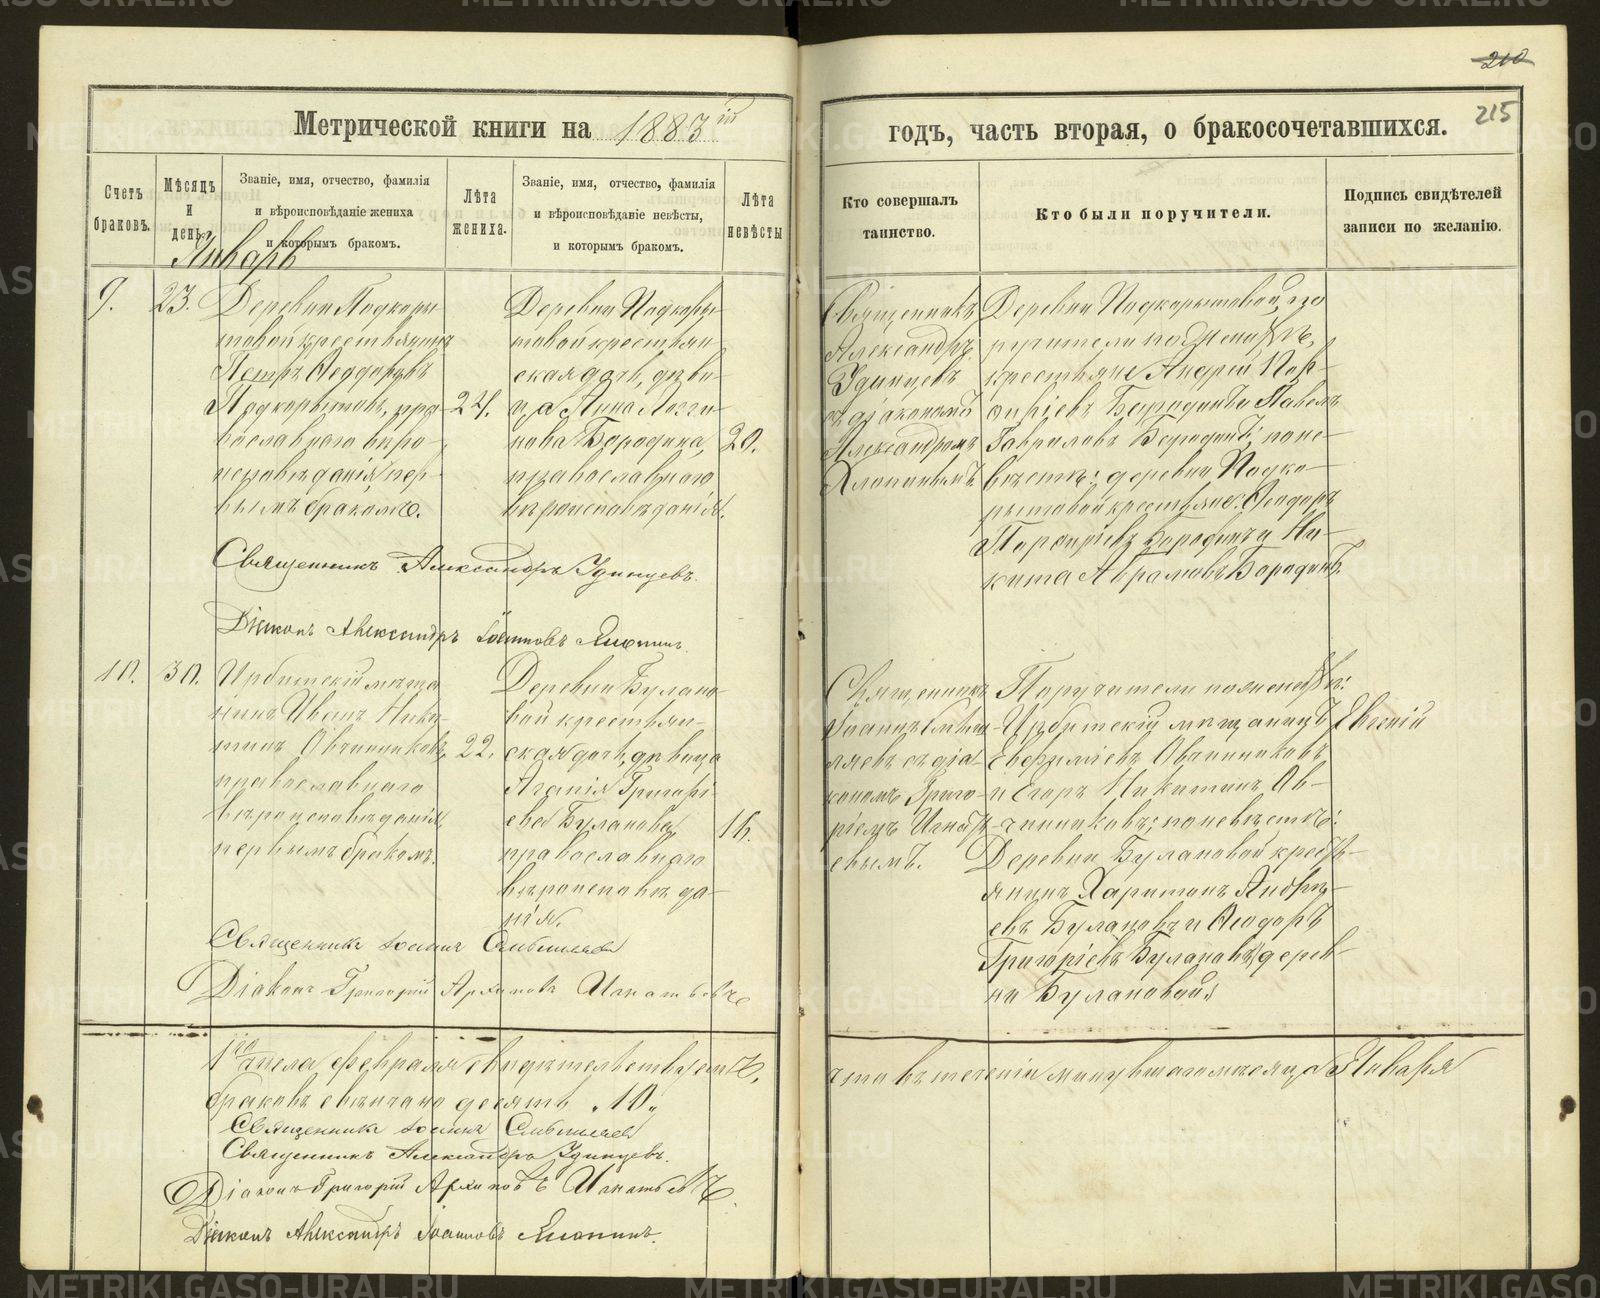 210
215
Метрической книги на 1883 й
годъ, часть вторая, о бракосочетавшихся.
Счетъ браковъ.
Мѣсяцъ и день.
Званіе, имя, отчество, фамилія и вѣроисповѣданіе жениха и которымъ бракомъ.
Лѣта жениха.
Званіе, имя, отчество, фамилія и вѣроисповѣданіе невѣсты, и которымъ бракомъ.
Лѣта невѣсты
Кто совершалъ таинство.
Кто были поручители.
Подпись свидѣтелей записи по желанію.
Январь
9.
23.
Деревни Подкоры
товой крестьянинъ
Петръ Ѳеодоровъ
Подкорытовъ, пра-
вославнаго вѣро-
исповѣданія пер-
вымъ бракомъ.
24.
Деревни Подкоры-
товой крестьян-
ская дочь, дѣви-
ца Анна Логги-
нова Бородина,
православнаго
вѣроисповѣданія.
20.
Священникъ
Александръ
Удинцевъ
съ діакономъ
Александромъ
Деревни Подкорытовой, по
ручители по женихѣ,
крестьяне Андрей Пор-
фиріевъ Бородинъ и Павелъ
Гавриловъ Бородинъ; по не-
вѣстѣ: деревни Подко-
рытовой крестьяне: Ѳеодоръ
Порфирьевъ Бородинъ и Ни-
кита Авраамовъ Бородинъ.
Священникъ Александръ Удинцевъ.
Діаконъ Александръ Іоанновъ
10.
30.
Ирбитскій мѣща
нинъ Иванъ Ники-
тинъ Овчинниковъ,
православнаго
вѣроисповѣданія,
первымъ бракомъ.
22.
Деревни Булано-
вой крестьян-
ская дочь, дѣвица
Агапія Григорі-
ева Буланова
православнаго
вѣроисповѣда-
нія.
16.
Священникъ
Іоаннъ
съ діа-
кономъ Григо-
ріемъ Игнать-
евымъ.
Поручители по женихѣ:
Ирбитскій мѣщанинъ Евгеній
Овчинниковъ
и Егоръ Никитинъ Ов-
чинниковъ; по невѣстѣ:
Деревни Булановой кресть-
янинъ Харитонъ Андре-
евъ Булановъ и Ѳеодоръ
Григорьевъ Булановъ дерев-
ни Булановой.
Священникъ Іоаннъ
Діаконъ Григорій Архиповъ Игнатьевъ
1го числа февраля свидѣтельствуемъ,
что въ теченіи минувшаго мѣсяца Января
браковъ свѣнчано десять „10„
Священникъ Іоаннъ
Священникъ Александръ Удинцевъ.
Діаконъ Григорій Архиповъ Игнатьевъ.
Діаконъ Александръ Іоанновъ
METRIKI.GASO-URAL.RU